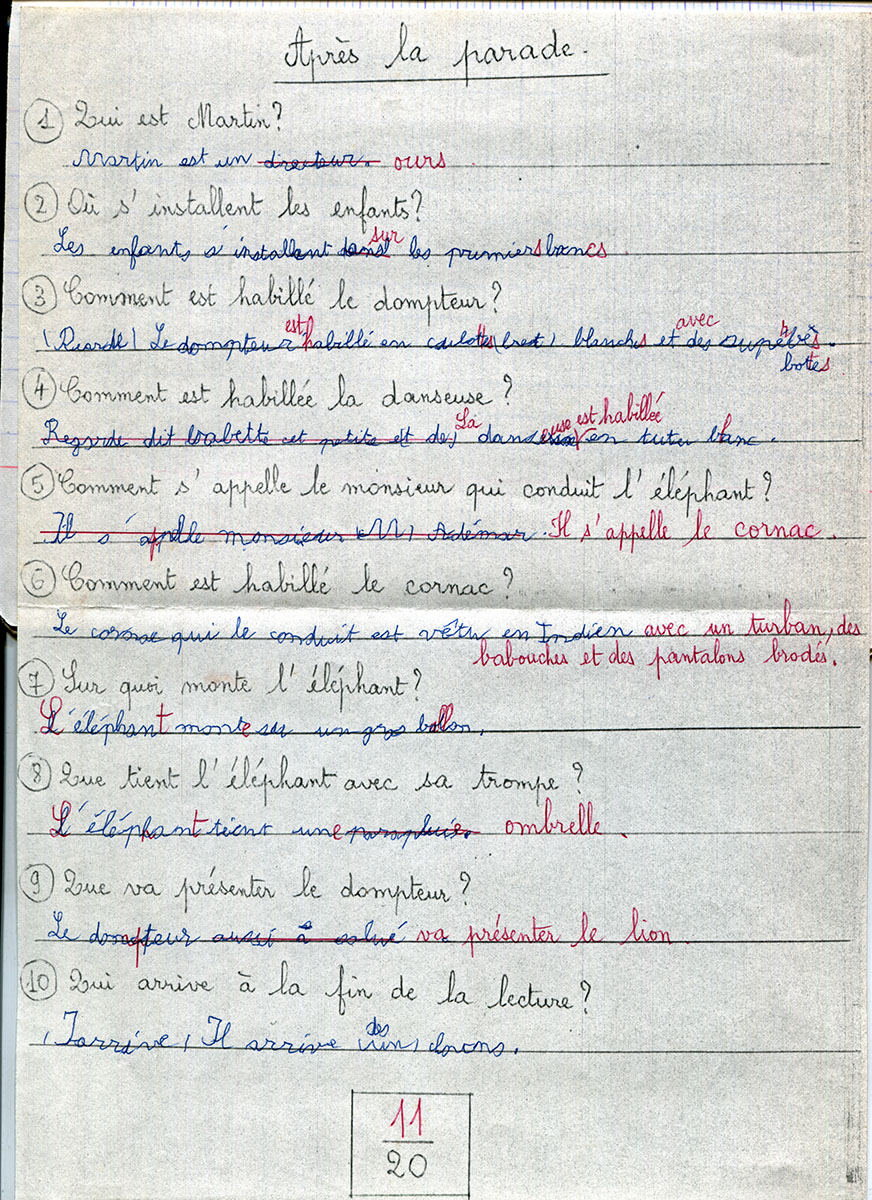 Après la parade.
1 Qui est Martin?
Martin est un directeur. ours
2 Où s'installent les enfants?
sur
Les enfants s'installent dans les premiers bancs
3 Comment est habillé le dompteur?
est avec
Le dompteur habillé en culottes blanches et des
bottes
4 Comment est habillée la danseuse?
La euse est habillée
Regarde dit babette cet petite et de danseuse en tutu blanc.
5 Comment s'appelle le monsieur qui conduit l'éléphant?
Il s'apelle monsieur Adémar. Il s'appelle le cornac.
6 Comment est habillé le cornac?
Le cornac qui le conduit est vêtu en Indien avec un turban, des
babouches et des pantalons brodés.
7 Sur quoi monte l'éléphant?
L'éléphant monte sur un gros ballon.
8 Que tient l'éléphant avec sa trompe?
L'éléphant tient une parapluie. ombrelle.
9 Que va présenter le dompteur?
Le dompteur aussi à salué va présenter le lion.
10 Qui arrive à la fin de la lecture?
des
(J'arrive) Il arrive (un) clowns.
11
20